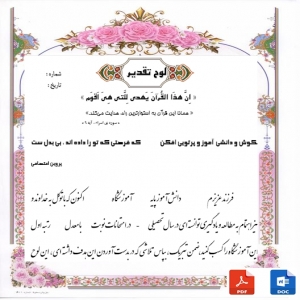 لوح تقدیر
شماره :
تاریخ :
« إِنَّ هَذَا الْقُرْآنَ يَهْدِي لِلَّتِي هِيَ أَقْوَم »
« همانا این قرآن به استوارترین راه هدایت می‌کند. »
کوش و دانشی آموز و پرتویی افکن که فرصتی که تو را داده اند، بی بدل ست
پروین اعتصامی
فرزند عزیزم دانش آموز پایه آموزشگاه اکنون که با توکل به خداوند و
عزم و اهتمام به مطالعه و یادگیری توانسته‌ای در سال تحصیلی - در امتحانات نوبت با معدل رتبه اول
این آموزشگاه را کسب کنید، ضمن تبریک، به پاس تلاشی که در به دست آوردن این هدف داشته‌ای، این لوح
PDF
DOC